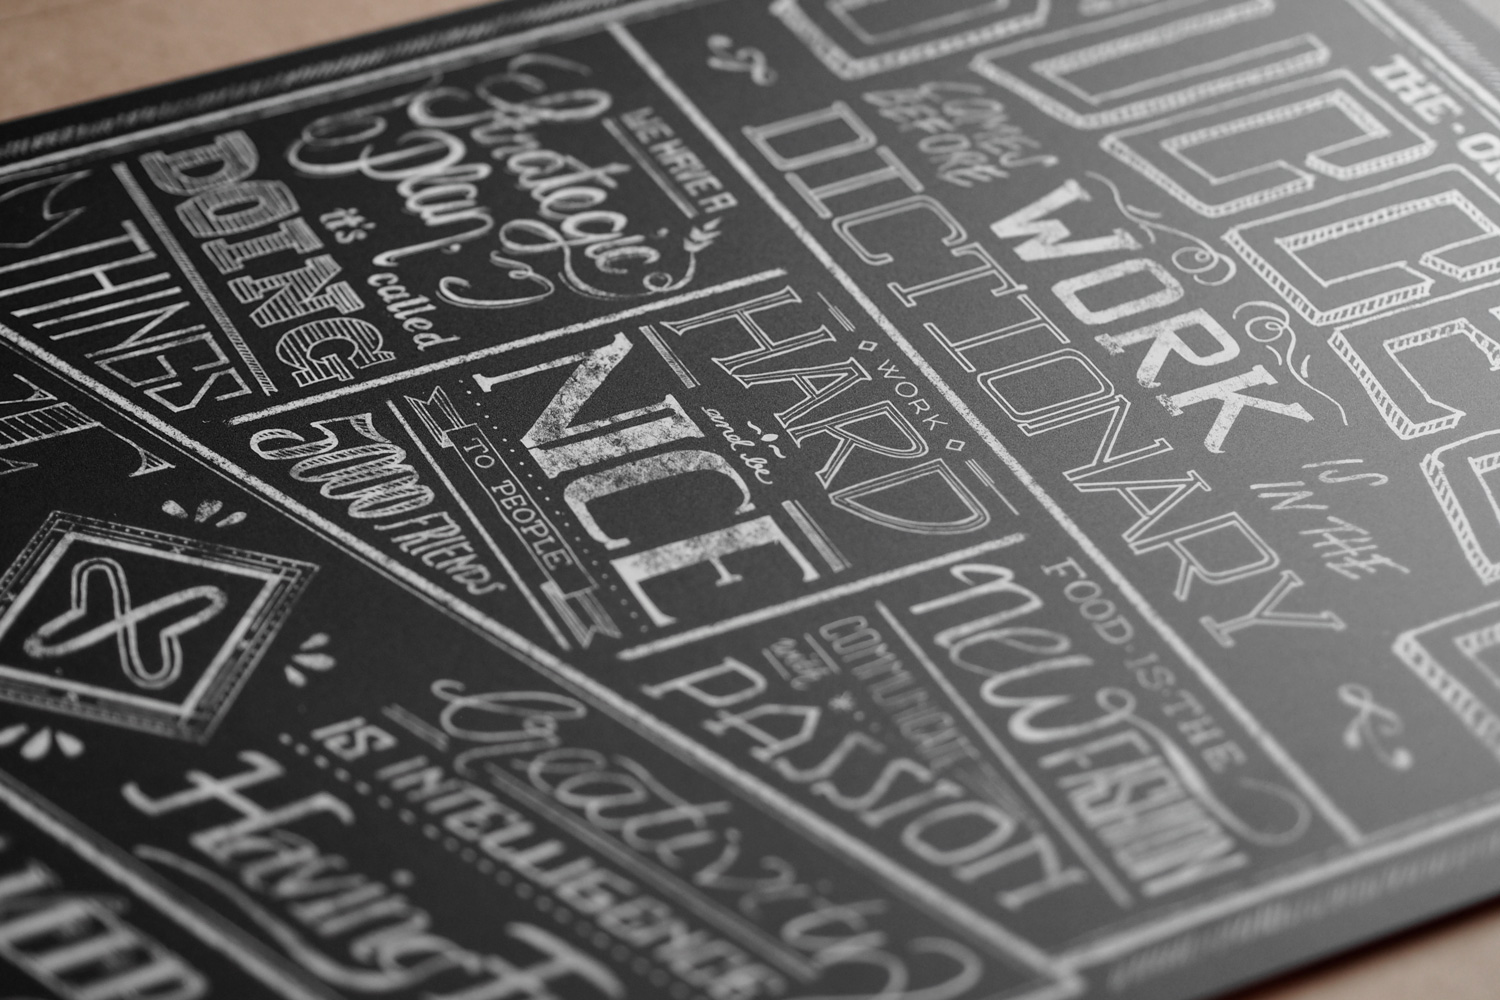 THE · 
COMES
BEFORE
WORK
IS
IN THE
DICTIONARY
WE HAVE A
Strategic
Plan
it's
called
DOING
THINGS
WORK
HARD
and be
NICE
TO PEOPLE
5000 FRIENDS
FOOD·IS·THE
new
FASHION
COMMUNICATE
with
PASSION
Creativity
IS INTELLIGENCE
Having